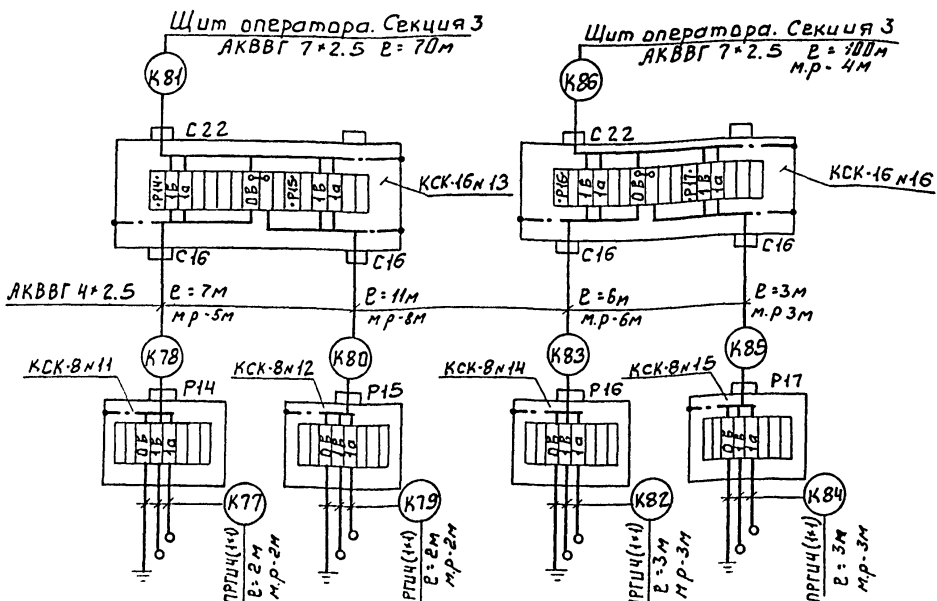 Щит оператора. Секция 3
АКВВГ 7*2.5 ℓ=70м
К81
С22
·Р14· 1Б 1а 0Б ·Р15· 1Б 1а
КСК-16 N 13
С16
С16
Щит оператора. Секция 3
АКВВГ 7*2.5 ℓ=100м
м.р-4м
К86
С22
·Р16· 1Б 1а 0Б ·Р17· 1Б 1а
КСК-16 N 16
С16
С16
АКВВГ 4*2.5
ℓ=7м
м.р-5м
ℓ=11м
м.р-8м
ℓ=6м
м.р-6м
ℓ=3м
м.р 3м
К78
К80
К83
К85
КСК-8 N 11
Р14
КСК-8 N 12
Р15
КСК-8 N 14
Р16
КСК-8 N 15
Р17
0Б 1Б 1а
0Б 1Б 1а
0Б 1Б 1а
0Б 1Б 1а
К77
К79
К82
К84
ПРГИЧ(1*1)
ℓ=2м
м.р-2м
ПРГИЧ(1*1)
ℓ=2м
м.р-2м
ПРГИЧ(1*1)
ℓ=3м
м.р-3м
ПРГИЧ(1*1)
ℓ=3м
м.р-3м